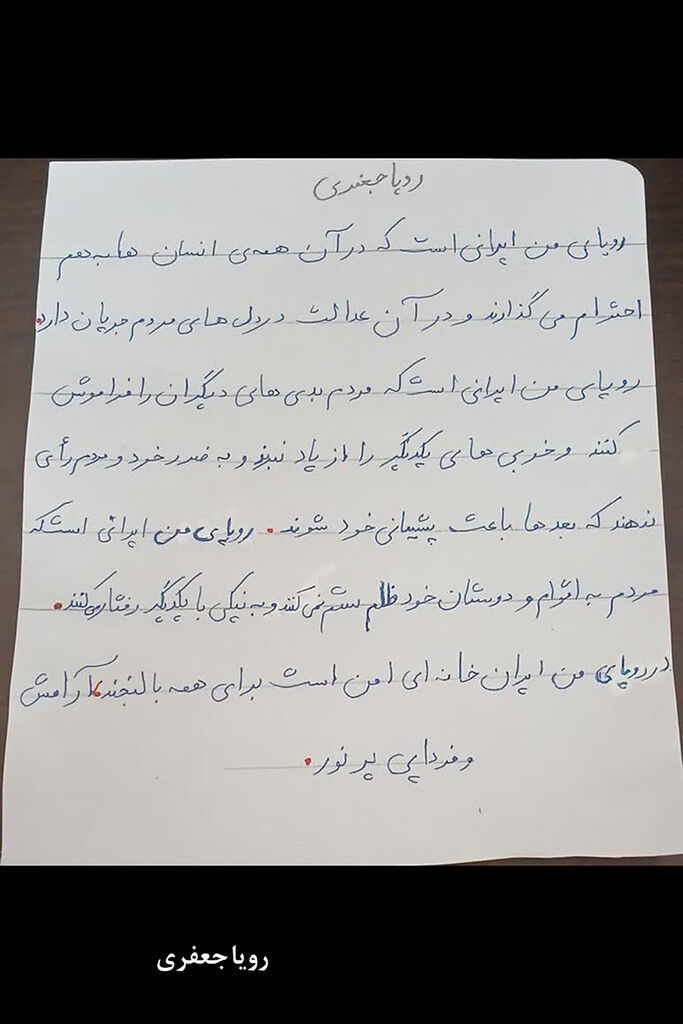 رویا جعفری
رویای من ایرانی است که در آن همه‌ی انسان ها به هم
احترام می گذارند و در آن عدالت در دل های مردم جریان دارد.
رویای من ایرانی است که مردم بدی های دیگران را فراموش
کنند و خوبی های یکدیگر را از یاد نبرند و به ضرر خود و مردم رأی
ندهند که بعدها باعث پشیمانی خود شوند. رویای من ایرانی است که
مردم به اقوام و دوستان خود ظلم ستم نمی کنند و به نیکی با یکدیگر رفتار می کنند.
در رویای من ایران خانه ای امن است برای همه با لبخند، آرامش
و فردایی پر نور.
رویا جعفری